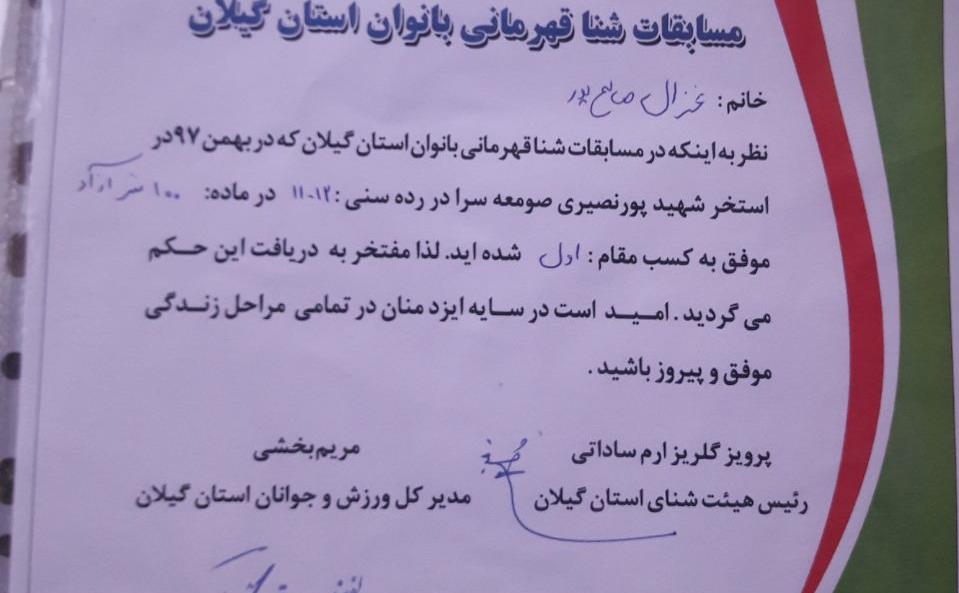 مسابقات شنا قهرمانی بانوان استان گیلان
خانم: غزال صالح پور
نظر به اینکه در مسابقات شنا قهرمانی بانوان استان گیلان که در بهمن ۹۷ در
استخر شهید پورنصیری صومعه سرا در رده سنی: ۱۲-۱۱ در ماده: ۱۰۰ متر آزاد
موفق به کسب مقام: اول شده اید. لذا مفتخر به دریافت این حکم
می گردید. امید است در سایه ایزد منان در تمامی مراحل زندگی
موفق و پیروز باشید.
پرویز گلریز ارم ساداتی مریم بخشی
رئیس هیئت شنای استان گیلان مدیر کل ورزش و جوانان استان گیلان